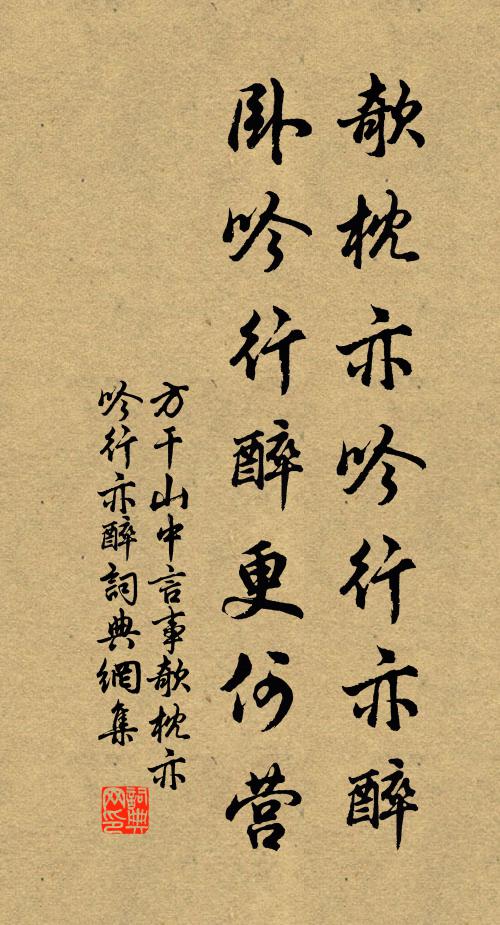 欹枕亦吟行亦醉
卧吟行醉更何营
方干山中言事欹枕亦
吟行亦醉詞典網集
詞典网印